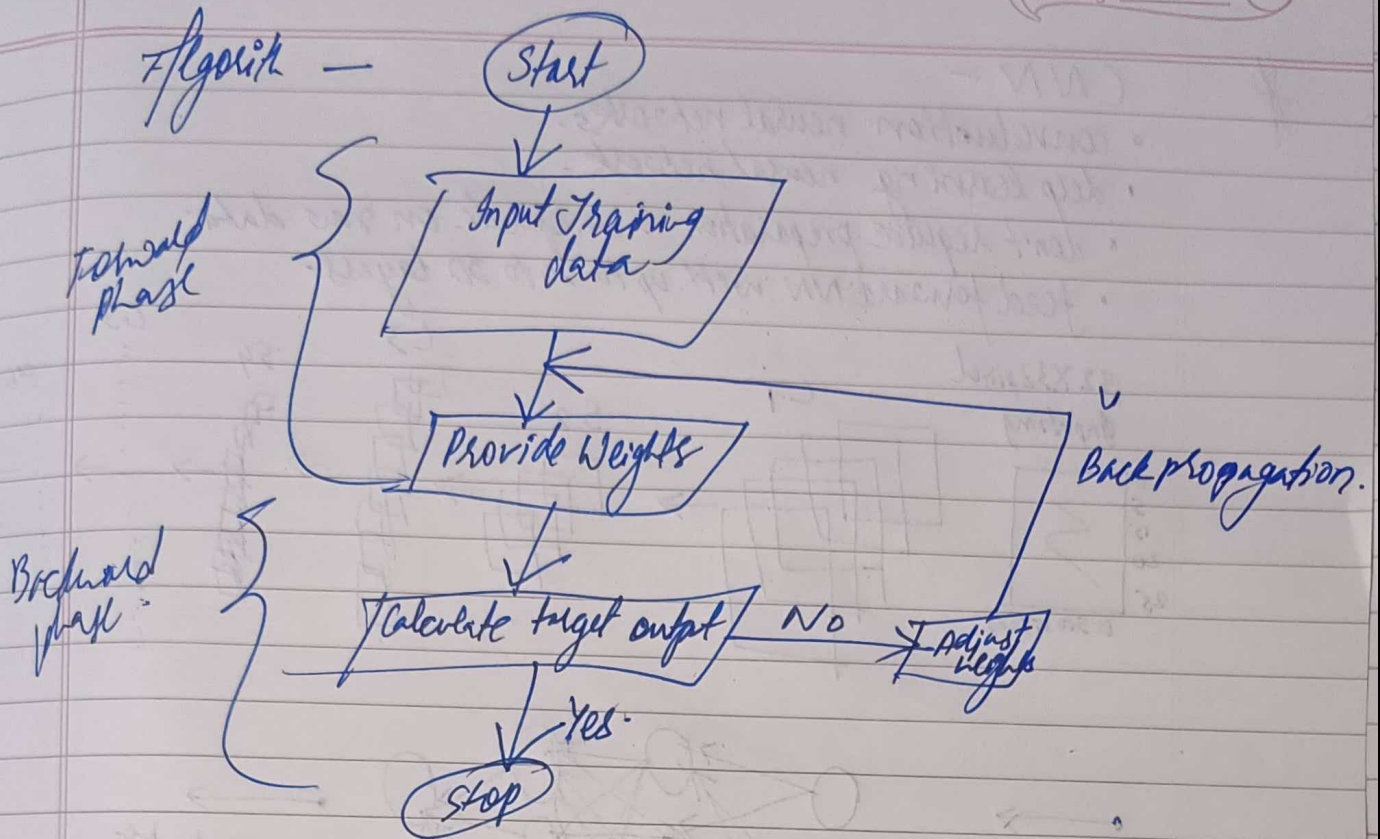 Algorith —
Start
Input Training
data
Forward
phase
Provide Weights
Backpropagation.
Backward
phase
Calculate target output
No
Adjust
weights
Yes.
Stop